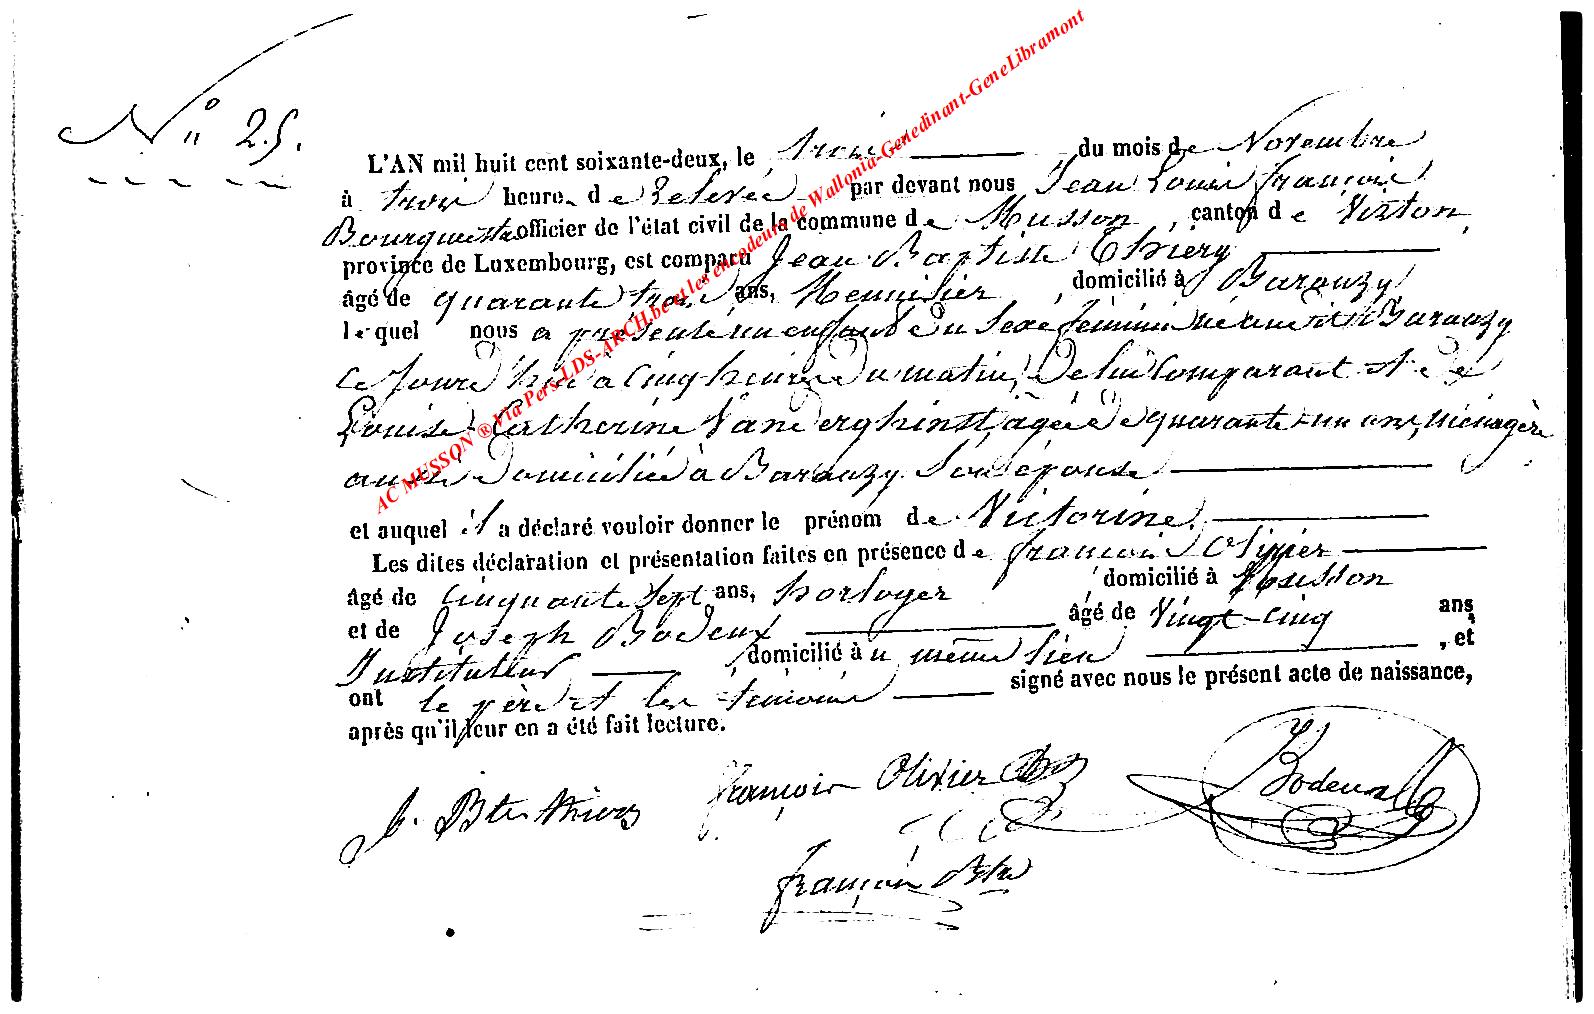 N° 25.
L'AN mil huit cent soixante-deux, le trois du mois de Novembre
à trois heure de Relevée par devant nous Jean Louis françois
Bourguemestre officier de l'état civil de la commune de Musson, canton de Virton,
province de Luxembourg, est comparu Jean Baptiste Thiéry
âgé de quarante trois ans, Menuisier, domicilié à Baranzy
lequel nous a présenté un enfant du sexe féminin né à Baranzy
ce jourd'hui à cinq heures du matin, de lui comparant et de
Louise Catherine Vanderghinst, agée de quarante-un ans, ménagère
aussi domiciliée à Baranzy son épouse
et auquel il a déclaré vouloir donner le prénom de Victorine.
Les dites déclaration et présentation faites en présence de françois Olivier
âgé de cinquante sept ans, horloger, domicilié à Musson
et de Joseph Bodeux âgé de Vingt-cinq ans
Instituteur, domicilié au même lieu, et
ont le père et les témoins signé avec nous le présent acte de naissance,
après qu'il leur en a été fait lecture.
J. Bte thiery françois Olivier Bodeux
françois
AC MUSSON ® Via Pers-LDS-ARCH.be et les encodeurs de Wallonia-Genedinant-GeneLibramont